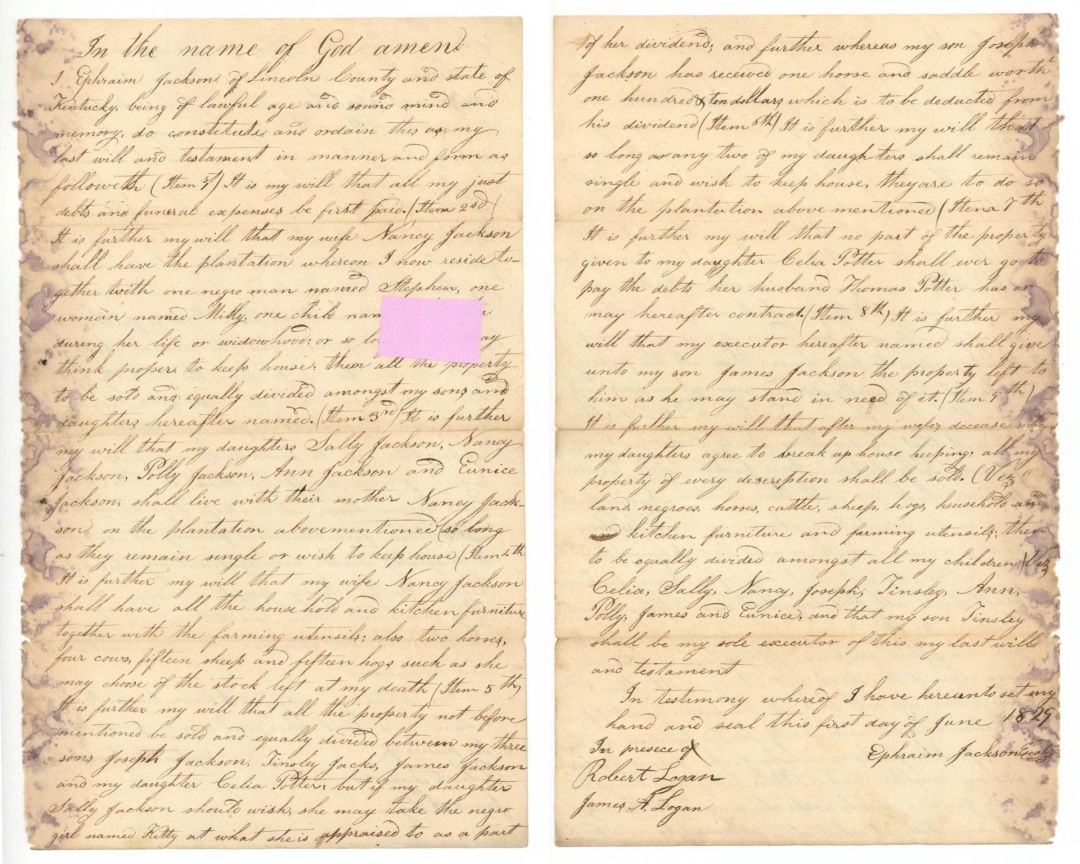 In the name of God amen.
I Ephraim Jackson, of Lincoln County and state of
Kentucky, being of lawful age and sound mind and
memory, do constitute and ordain this as my
last will and testament in manner and form as
followeth (Item 1st) It is my will that all my just
debts and funeral expenses be first paid. (Item 2nd)
It is further my will that my wife Nancy Jackson
shall have the plantation whereon I now reside to-
gether with one negro man named Stephen, one
woman named Milly, one child
during her life or widowhood; or so
think proper to keep house; then all the property
to be sold and equally divided amongst my sons and
daughters hereafter named. (Item 3rd) It is further
my will that my daughters Sally Jackson, Nancy
Jackson, Polly Jackson, Ann Jackson and Eunice
Jackson, shall live with their mother Nancy Jack-
son, on the plantation abovementioned (so long
as they remain single or wish to keep house (Item 4th
It is further my will that my wife Nancy Jackson
shall have all the house hold and kitchen furniture
together with the farming utensils; also two horses,
four cows, fifteen sheep and fifteen hogs such as she
may choose of the stock left at my death (Item 5th)
It is further my will that all the property not before
mentioned be sold and equally divided between my three
sons Joseph Jackson, Tinsley Jacks, James Jackson
and my daughter Celia Potter; but if my daughter
Sally Jackson should wish, she may take the negro
girl named Kitty at what she is appraised to as a part
of her dividend; and further whereas my son Joseph
Jackson has received one horse and saddle worth
one hundred & ten dollars which is to be deducted from
his dividend (Item 6th) It is further my will that
so long as any two of my daughters shall remain
single and wish to keep house, they are to do so
on the plantation above mentioned (Item 7th
It is further my will that no part of the property
given to my daughter Celia Potter shall ever go to
pay the debts her husband Thomas Potter has or
may hereafter contract. (Item 8th) It is further my
will that my executor hereafter named shall give
unto my son James Jackson the property left to
him as he may stand in need of it. (Item 9th)
It is further my will that after my wifes decease
my daughters agree to break up house keeping; all my
property of every description shall be sold. (Viz
land, negroes, horses, cattle, sheep, hogs, household and
kitchen furniture and farming utensils; then
to be equally divided amongst all my children (Viz
Celia, Sally, Nancy, Joseph, Tinsley, Ann,
Polly, James and Eunice; and that my son Tinsley
shall be my sole executor of this my last will
and testament
In testimony whereof I have hereunto set my
hand and seal this first day of June 1829
In presece of
Ephraim Jackson Seal
Robert Logan
James A. Logan